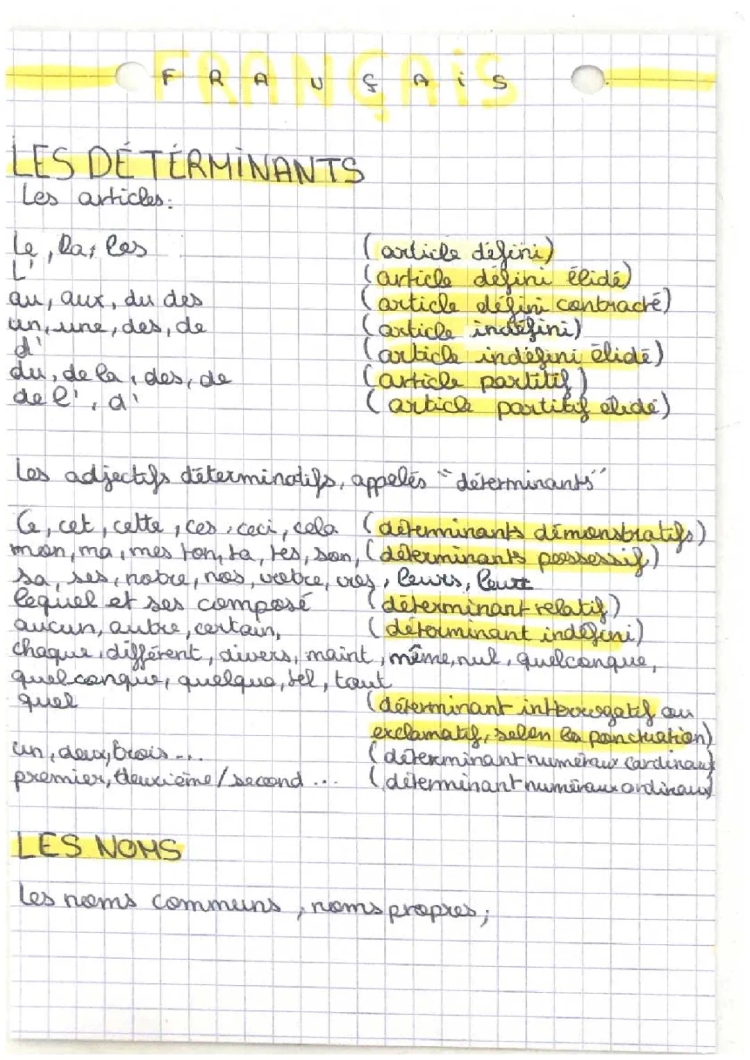 FRANÇAiS
LES DÉTÉRMiNANTS
Les articles:
le, la, les (article défini)
L' (article défini élidé)
au, aux, du des (article défini contracté)
un, une, des, de (article indéfini)
d' (article indéfini élidé)
du, de la, des, de (article partitif)
de l', d' (article partitif élidé)
Les adjectifs déterminatifs, appelés "déterminants"
Ce, cet, cette, ces, ceci, cela (déterminants démonstratifs)
mon, ma, mes ton, ta, tes, son, (déterminants possessif)
sa, ses, notre, nos, votre, vos, leurs, leur
lequel et ses composé (déterminant relatif)
aucun, autre, certain, (déterminant indéfini)
chaque, différent, divers, maint, même, nul, quelconque,
quelconque, quelque, tel, tout
quel (déterminant interrogatif ou
exclamatif, selon la ponctuation)
un, deux, trois ... (déterminant numéraux cardinaux)
premier, deuxième/second ... (déterminant numéraux ordinaux)
LES NOMS
Les noms communs, noms propres;